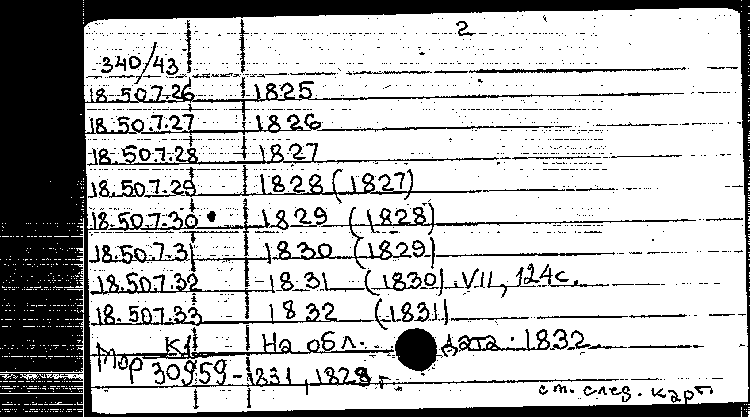 2
340/43
18.50.7.26 1825
18.50.7.27 1826
18.50.7.28 1827
18.50.7.29 1828 (1827)
18.50.7.30 • 1829 (1828)
18.50.7.31 1830 (1829)
18.50.7.32 1831 (1830). VII, 124с.
18.507.33 1832 (1831)
К1 На обл. дата 1832
Мор 30959 - 1831, 1828 г.
см. след. карт.